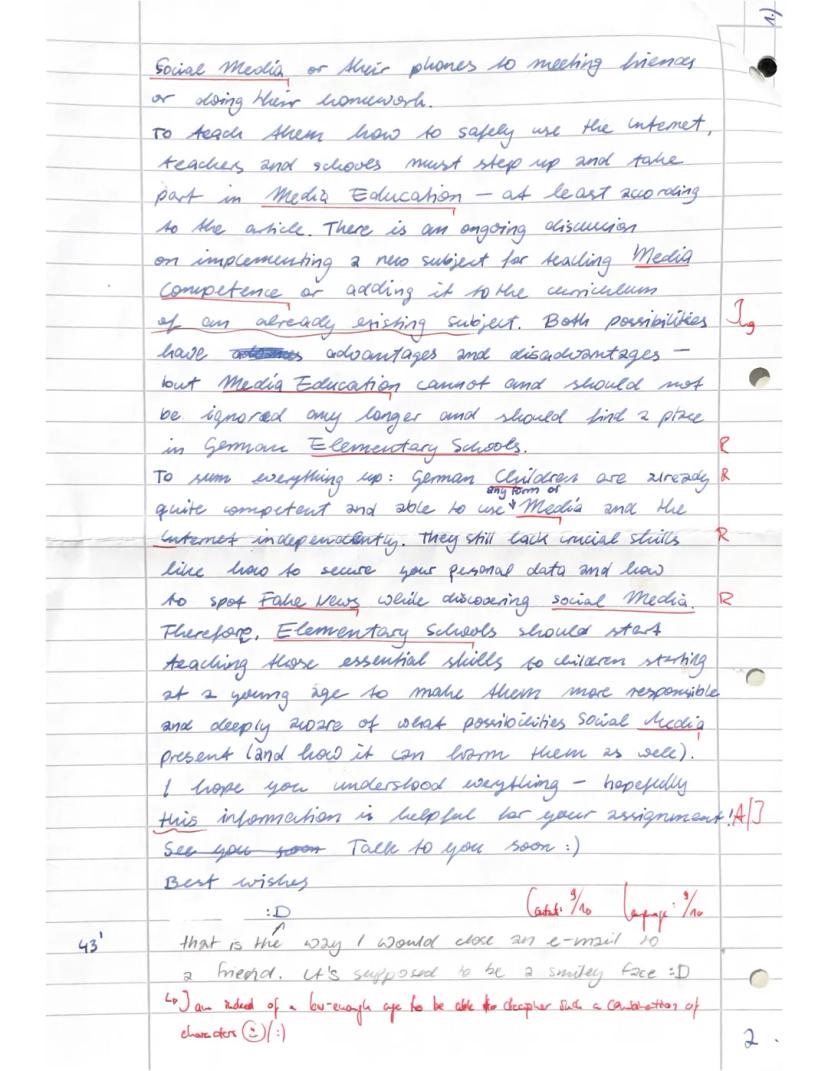 1.)
Social Media or their phones to meeting friends
or doing their homework.
To teach them how to safely use the internet,
teachers and schools must step up and take
part in Media Education – at least according
to the article. There is an ongoing discussion
on implementing a new subject for teaching Media
Competence or adding it to the curriculum
of an already existing subject. Both possibilities
have advantages and disadvantages –
but Media Education cannot and should not
be ignored any longer and should find a place
in German Elementary Schools. R
To sum everything up: German Children are already R
any form of
quite competent and able to use Media and the
internet independently. They still lack crucial skills R
like how to secure your personal data and how
to spot Fake News while discovering social Media. R
Therefore, Elementary Schools should start
teaching those essential skills to children starting
at a young age to make them more responsible
and deeply aware of what possibilities Social Media
present (and how it can harm them as well).
I hope you understood everything – hopefully
this information is helpful for your assignment!
See you soon Talk to you soon :)
Best wishes
Content: 9/10 Language: 9/10
:D
43' that is the way I would close an e-mail to
a friend. It's supposed to be a smiley face :D
I am indeed of a low-enough age to be able to decipher such a combination of
characters (:)
2.